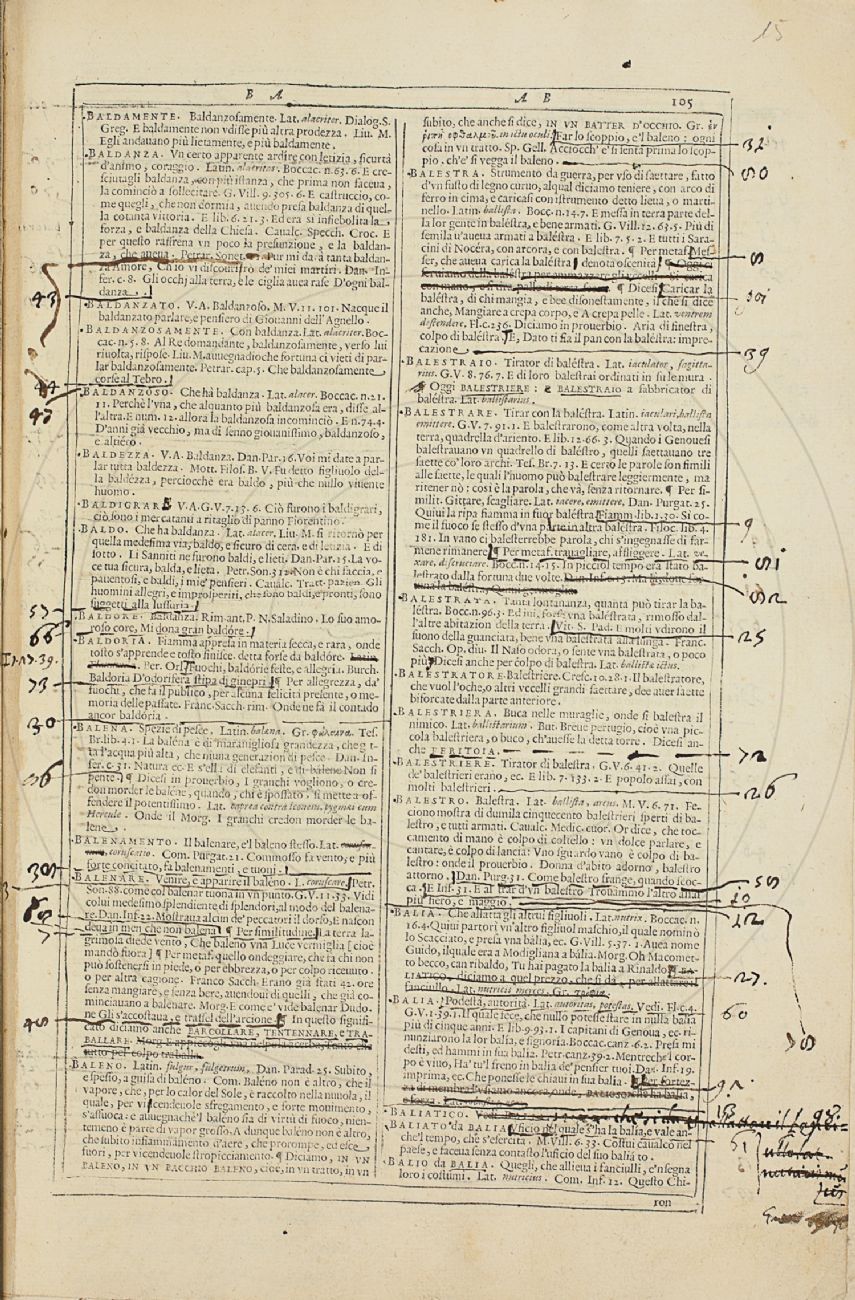 15
B A
A B
105
BALDAMENTE. Baldanzosamente. Lat. alacriter. Dialog. S.
Greg. E baldamente non vdisse più altra prodezza. Liu. M.
Egli andauano più lietamente, e più baldamente.
BALDANZA. Vn certo apparente ardire con letizia, sicurtà
d'animo, coraggio. Latin. alacritas. Boccac. n. 63. 6. E cre-
sciutagli baldanza, con più istanza, che prima non faceua,
la cominciò a sollecitare. G. Vill. 9. 305. 6. E castruccio, co-
me quegli, che non dormia, auendo presa baldanza di quel-
la cotanta vittoria. E lib. 6. 21. 3. Ed era sì infiebolita la
forza, e baldanza della Chiesa. Caualc. Specch. Croc. E
per questo raffrena vn poco la presunzione, e la baldan-
za, che aueua. Petrar. Sonet. Pur mi darà tanta baldan-
za Amore, Ch'io vi discouriro de' miei martiri. Dan. In-
fer. c. 8. Gli occhj alla terra, e le ciglia auea rase D'ogni bal-
danza.
BALDANZATO. V. A. Baldanzoso. M. V. 11. 101. Nacque il
baldanzato parlare, e pensiero di Giouanni dell'Agnello.
BALDANZOSAMENTE. Con baldanza. Lat. alacriter. Boc-
cac. n. 5. 8. Al Re domandante, baldanzosamente, verso lui
riuolta, rispose. Liu. M. auuegnadioche fortuna ci vieti di par-
lar baldanzosamente. Petrar. cap. 5. Che baldanzosamente
corse al Tebro.
BALDANZOSO. Che hà baldanza. Lat. alacer. Boccac. n. 21.
11. Perchè l'vna, che alquanto più baldanzosa era, disse al-
l'altra. E num. 12. allora la baldanzosa incominciò. E n. 74. 4.
D'anni già vecchio, ma di senno giouanissimo, baldanzoso,
e altiero.
BALDEZZA. V. A. Baldanza. Dan. Par. 16. Voi mi date a par-
lar tutta baldezza. Mott. Filos. B. V. Fu detto figliuolo del-
la baldézza, perciocchè era baldo, più che nullo viuente
huomo.
BALDIGRARO V. A. G. V. 7. 13. 6. Ciò furono i baldigrari,
ciò sono i mercatanti a ritaglio di panno Fiorentino.
BALDO. Che ha baldanza. Lat. alacer. Liu. M. si ritornò per
quella medesima via, baldo, e sicuro di cera, e di letizia. E di
sotto. Li Sanniti ne furono baldi, e lieti. Dan. Par. 15. La vo-
ce tua sicura, balda, e lieta. Petr. Son. 312. Non è chi faccia, e
pauentosi, e baldi, i mie' pensieri. Caualc. Tratt. pazien. Gli
huomini allegri, e improsperiti, che sono baldi, e pronti, sono
suggetti alla lussuria.
BALDORE. Baldanza. Rim. ant. P. N. Saladino. Lo suo amo-
roso core, Mi dona gran baldóre.
BALDORIA. Fiamma appresa in materia secca, e rara, onde
tosto s'apprende e tosto finisce. detta forse da baldóre.
Per. Orl. Fuochi, baldórie feste, e allegria. Burch.
Baldoria D'odorifera stipa di ginepri. ¶ Per allegrezza, da'
fuochi, che fa il publico, per alcuna felicità presente, o me-
moria delle passate. Franc. Sacch. rim. Onde ne fà il contado
ancor baldória.
BALENA. Spezie di pesce. Latin. balena. Gr. φάλαινα. Tes.
Br. lib. 4. 1. La baléna è di marauigliosa grandezza, che g t-
ta l'acqua più alta, che niuna generazion di pesce. Dan. In-
fer. c. 31. Natura ec. E s'ella di elefanti, e di balene Non si
pente. ¶ Dicesi in prouerbio, I granchi vogliono, o cre-
don morder le balene, quando, chi è spossato, si mette a of-
fendere il potentissimo. Lat. caprea contra leonem. pygmæi cum
Hercule. Onde il Morg. I granchi credon morder le ba-
lene.
BALENAMENTO. Il balenare, e'l baleno stesso. Lat.
coruscatio. Com. Purgat. 21. Commosso fa vento, e più
forte concitato, fà balenamenti, e tuoni.
BALENARE. Venire, e apparire il baleno. L. coruscare. Petr.
Son. 88. come col balenar tuona in vn punto. G. V. 11. 33. Vidi
colui medesimo splendiente di splendori, al modo del balena-
re. Dan. Inf. 22. Mostraua alcun de' peccatori il dorso, E nascon
deua in men che non balena. ¶ Per similitudine. La terra la-
grimosa diede vento, Che baleno vna Luce vermiglia [cioè
mandò fuora] ¶ Per metaf. quello ondeggiare, che fa chi non
può sostenersi in piede, o per ebbrezza, o per colpo riceuuto.
o per altra cagione. Franco Sacch. Erano già stati 42. ore
senza mangiare, e senza bere, auendoui di quelli, che già co-
minciauano a balenare. Morg. E come e' vide balenar Dudo-
ne Gli s'accostaua, e trassel dell'arcione. ¶ In questo signifi-
cato diciamo anche BARCOLLARE, TENTENNARE, e TRA-
BALLARE.
BALENO. Latin. fulgur, fulgetrum. Dan. Parad. 25. Subito,
e spesso, a guisa di baléno. Com. Baléno non è altro, che il
vapore, che, per lo calor del Sole, è raccolto nella nuuola, il
quale, per vicendeuole sfregamento, e forte mouimento,
s'affuoca: e auuegnachè'l baléno sia di virtù di fuoco, nien-
temeno è parte di vapor grosso. Adunque baléno non è altro,
che subito infiammamento d'aere, che prorompe, ed esce
fuori, per vicendeuole stropicciamento. ¶ Diciamo, IN VN
BALENO, IN VN BACCHIO BALENO, cioè, in vn tratto, in vn
subito, che anche si dice, IN VN BATTER D'OCCHIO. Gr. ἐν
ῥιπῇ ὀφθαλμοῦ. in ictu oculi. Far lo scoppio, e'l baleno: ogni
cosa in vn tratto. Sp. Gell. Acciocch' e' si senta prima lo scop-
pio, ch'e' si vegga il baleno.
BALESTRA. Strumento da guerra, per vso di saettare, fatto
d'vn fusto di legno curuo, al qual diciamo teniere, con arco di
ferro in cima, e caricasi con istrumento detto lieua, o marti-
nello. Latin. ballista. Bocc. n. 14. 7. E messa in terra parte del-
la lor gente in balestra, e bene armati. G. Vill. 12. 63. 5. Più di
semila v'aueua armati a baléstra. E lib. 7. 5. 2. E tutti i Sara-
cini di Nocéra, con arcora, e con balestra. ¶ Per metaf. Mes-
ser, che aueua carica la balestra [denota oscenità] Oggi ci
seruiamo della balestra per ammazzare gli vccelli. Si carica
con mano, e si tire palle di terra secca. ¶ Dicesi Caricar la
baléstra, di chi mangia, e bee disonestamente, il che si dice
anche, Mangiare a crepa corpo, e A crepa pelle. Lat. ventrem
distendere. Fl. c. 236. Diciamo in prouerbio. Aria di finestra,
colpo di baléstra. E, Dato ti sia il pan con la baléstra: impre-
cazione.
BALESTRAIO. Tirator di baléstra. Lat. iaculator, sagitta-
rius. G. V. 8. 76. 7. E di loro balestrai ordinati in su le mura.
Oggi BALESTRIERE: e BALESTRAIO a fabbricator di
baléstra. Lat. ballistarius.
BALESTRARE. Tirar con la baléstra. Latin. iaculari, ballista
emittere. G. V. 7. 91. 1. E balestrarono, come altra volta, nella
terra, quadrella d'ariento. E lib. 12. 66. 3. Quando i Genouesi
balestrauano vn quadrello di baléstro, quelli saettauano tre
saette co' loro archi. Tes. Br. 7. 13. E certo le parole son simili
alle saette, le quali l'huomo può balestrare leggiermente, ma
ritener nò: così è la parola, che và, senza ritornare. ¶ Per si-
milit. Gittare, scagliare. Lat. iacere, emittere. Dan. Purgat. 25.
Quiui la ripa fiamma in fuor balestra. Fiamm. lib. 1. 30. Sì co-
me il fuoco se stesso d'vna parte in altra balestra. Filoc. lib. 4.
181. In vano ci balesterrebbe parola, chi s'ingegnasse di far-
mene rimanere. ¶ Per metaf. trauagliare, affliggere. Lat. ve-
xare, discruciare. Bocc. n. 14. 15. In picciol tempo era stato ba-
lestrato dalla fortuna due volte.
BALESTRATA. Tanta lontananza, quanta può tirar la ba-
léstra. Bocc. n. 96. 3. Ed iui, forse vna balestrata, rimosso dal-
l'altre abitazion della terra. Vit. S. Pad. E molti vdirono il
suono della guanciata, bene vna balestrata alla lunga. Franc.
Sacch. Op. diu. Il Naso odora, o sente vna balestrata, o poco
più. Dicesi anche per colpo di balestra. Lat. ballistæ ictus.
BALESTRATORE. Balestriere. Cresc. 10. 28. 1. Il balestratore,
che vuol l'oche, o altri vccelli grandi saettare, dee auer saette
biforcate dalla parte anteriore.
BALESTRIERA. Buca nelle muraglie, onde si balestra il
nimico. Lat. ballistarium. But. Breue pertugio, cioè vna pic-
cola balestriera, o buco, ch'auesse la detta torre. Dicesi an-
che FERITOIA.
BALESTRIERE. Tirator di balestra. G. V. 6. 41. 2. Quelle
de' balestrieri erano, ec. E lib. 7. 133. 2. E popolo assai, con
molti balestrieri.
BALESTRO. Balestra. Lat. ballista, arcus. M. V. 6. 71. Fe-
ciono mostra di dumila cinquecento balestrieri sperti di ba-
lestro, e tutti armati. Caualc. Medic. cuor. Or dice, che toc-
camento di mano è colpo di coltello: vn dolce parlare, e
cantare, è colpo di lancia: Vno sguardo vano è colpo di ba-
lestro: onde il prouerbio. Donna d'abito adorno, balestro
attorno. Dan. Purg. 31. Come balestro frange, quando scoc-
ca. E Inf. 31. E al trar d'vn balestro Trouammo l'altro assai
più fiero, e maggio.
BALIA. Che allatta gli altrui figliuoli. Lat. nutrix. Boccac. n.
16. 4. Quiui partorì vn'altro figliuol maschio, il quale nominò
lo Scacciato, e presa vna bália, ec. G. Vill. 5. 37. 1. Auea nome
Guido, il quale era a Modigliana a bália. Morg. Oh Macomet-
to becco, can ribaldo, Tu hai pagato la balia a Rinaldo. BA-
LIATICO, diciamo a quel prezzo, che si dà, per allattare il
fanciullo. Lat. nutricis merces. Gr.
BALIA. Podestà, autorità. Lat. autoritas, potestas. Vedi. Fl. c. 4.
G. V. 1. 39. 1. Il quale fece, che nullo potesse stare in nulla balía
più di cinque anni. E lib. 9. 93. 1. I capitani di Genoua, ec. ri-
nunziarono la lor balía, e signoria. Boccac. canz. 6. 2. Presi mi
desti, ed hammi in sua balía. Petr. canz. 39. 2. Mentrech'l cor-
po è viuo, Ha' tu'l freno in balía de' pensier tuoi. Dan. Inf. 19.
imprima, ec. Che ponesse le chiaui in sua balía. Per fortez-
za di membra. Vsiamo ancora, onde, BALIOSO, chi ha balía,
e forza.
BALIATICO.
BALIATO da BALIA. Vficio di quale ha la balía, e vale an-
che'l tempo, che s'esercita. M. Vill. 6. 33. Costui caualcò nel
paese, e faceua senza contasto l'uficio del suo baliáto.
BALIO da BALIA. Quegli, che allieua i fanciulli, e'nsegna
loro i costumi. Lat. nutricius. Com. Inf. 12. Questo Chi-
ron
43
44
45
53
66
73
30
36
305
7
48
32
50
8
39
9
51
52
25
72
26
58
10
12
27.
60
92
98.
51